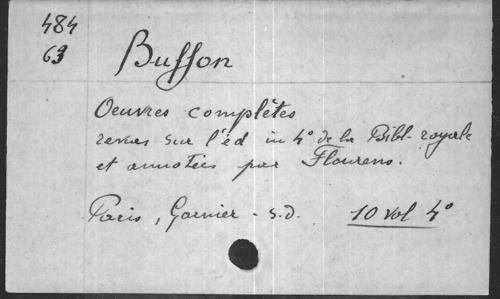 484
63
Buffon
Oeuvres complètes
revues sur l'éd in 4° de la Bibl. royale
et annotées par Flourens.
Paris, Garnier - s.d. 10 vol 4°